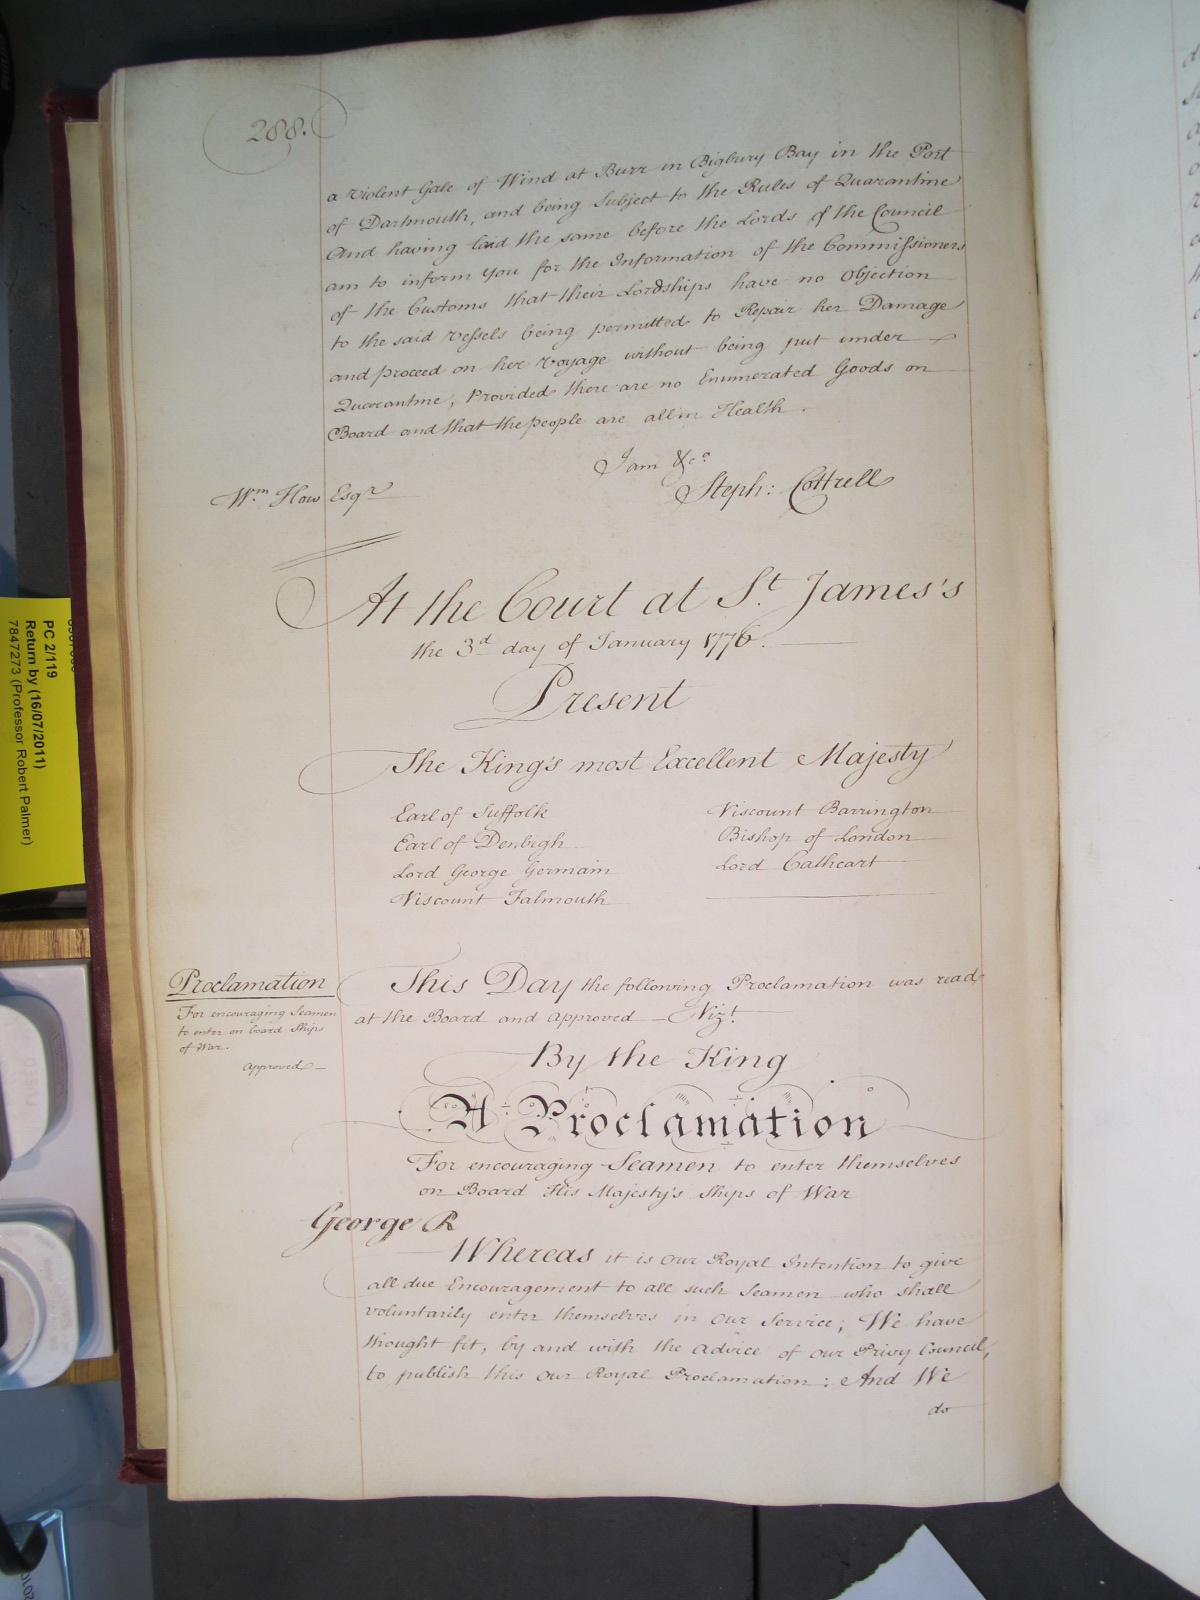 288.
a violent Gale of Wind at Burr in Bigbury Bay in the Port
of Dartmouth, and being Subject to the Rules of Quarantine
And having laid the same before the Lords of the Council
am to inform you for the Information of the Commissioners
of the Customs that their Lordships have no Objection
to the said Vessels being permitted to Repair her Damage
and proceed on her Voyage without being put under
Quarantine, Provided there are no Enumerated Goods on
Board and that the people are all in Health.
I am &c.a
Steph: Cottrell
Wm. How Esqr
At the Court at St. James's
the 3d day of January 1776.
Present
The King's most Excellent Majesty
Earl of Suffolk
Earl of Denbigh
Lord George Germain
Viscount Falmouth
Viscount Barrington
Bishop of London
Lord Cathcart
Proclamation
For encouraging Seamen
to enter on board Ships
of War.
approved
This Day the following Proclamation was read
at the Board and approved – Vizt.
By the King
A Proclamation
For encouraging Seamen to enter themselves
on Board His Majesty's Ships of War
George R
Whereas it is Our Royal Intention to give
all due Encouragement to all such Seamen who shall
voluntarily enter themselves in Our Service; We have
thought fit, by and with the Advice of Our Privy Council,
to publish this Our Royal Proclamation: And We
do
PC 2/119
Return by (16/07/2011)
7847273 (Professor Robert Palmer)